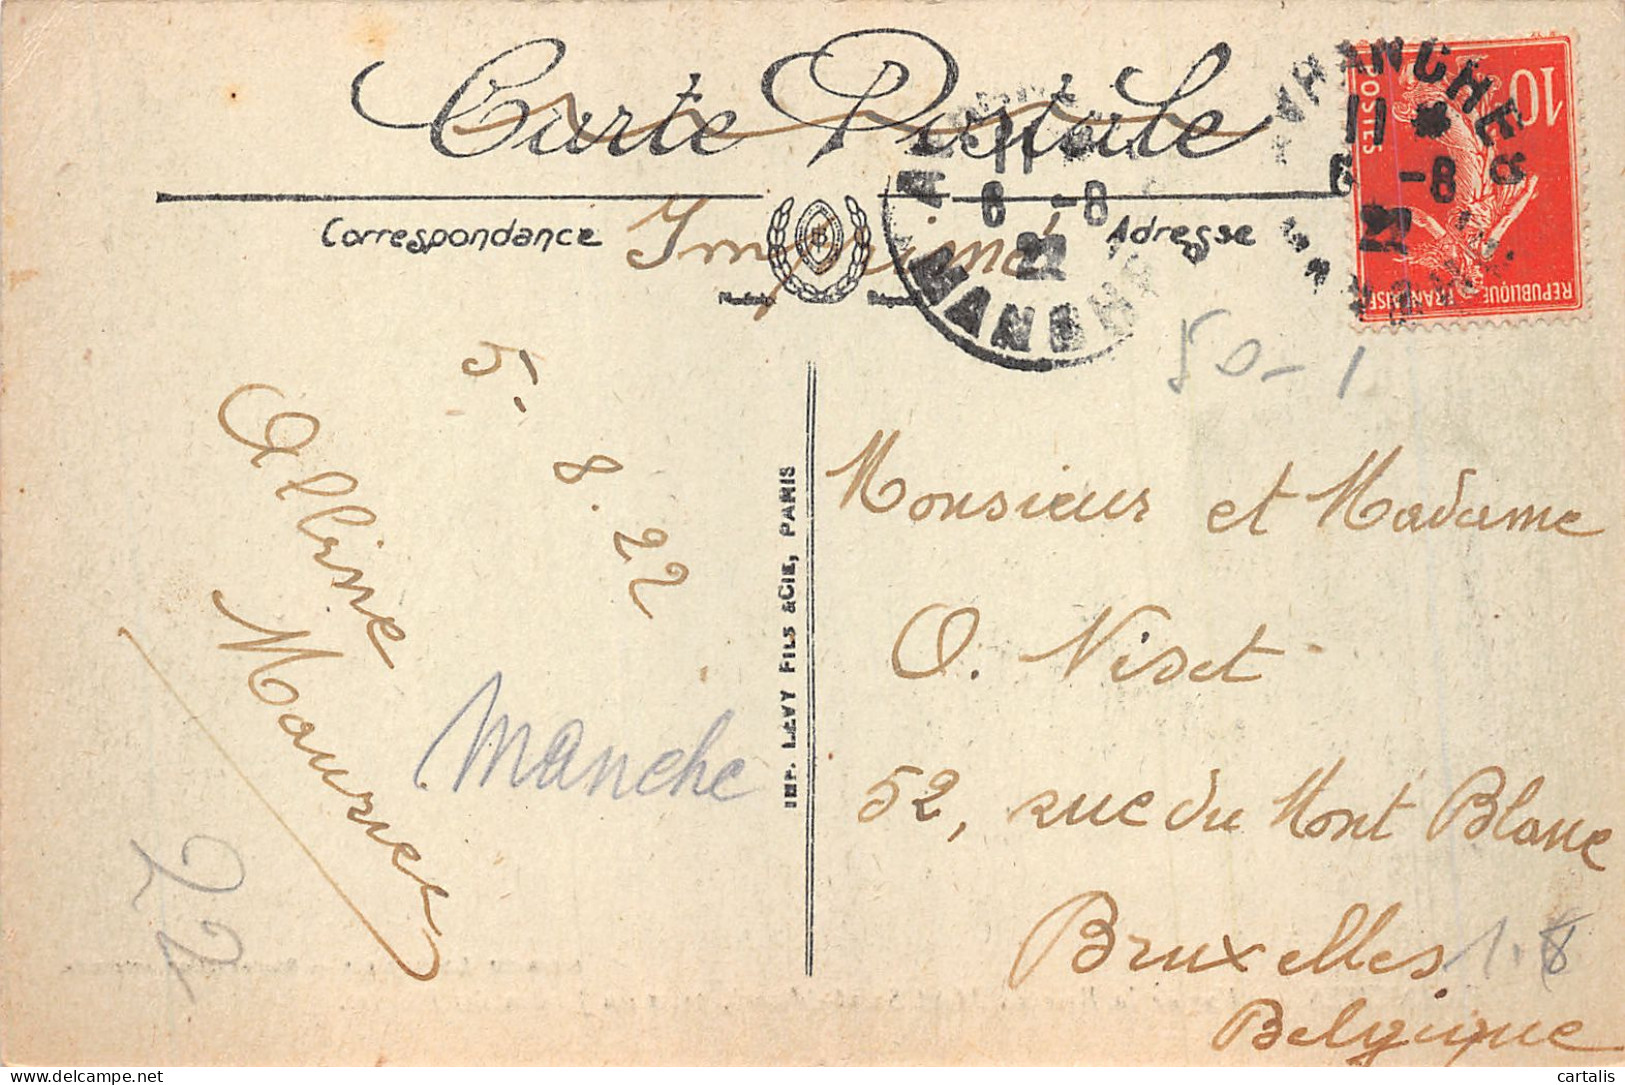 Carte Postale
Correspondance
Adresse
Imprimé
AVRANCHES
11 *
6 -8
22
MANCHE
AVRANCHES
11 *
6 -8
22
10
POSTES
REPUBLIQUE FRANCAISE
50-1
5.8.22
Aline
Mauret
Manche
22
IMP. LEVY FILS & CIE, PARIS
Monsieur et Madame
O. Niset
52, rue du Mont Blanc
Bruxelles
1.8
Belgique
cartalis